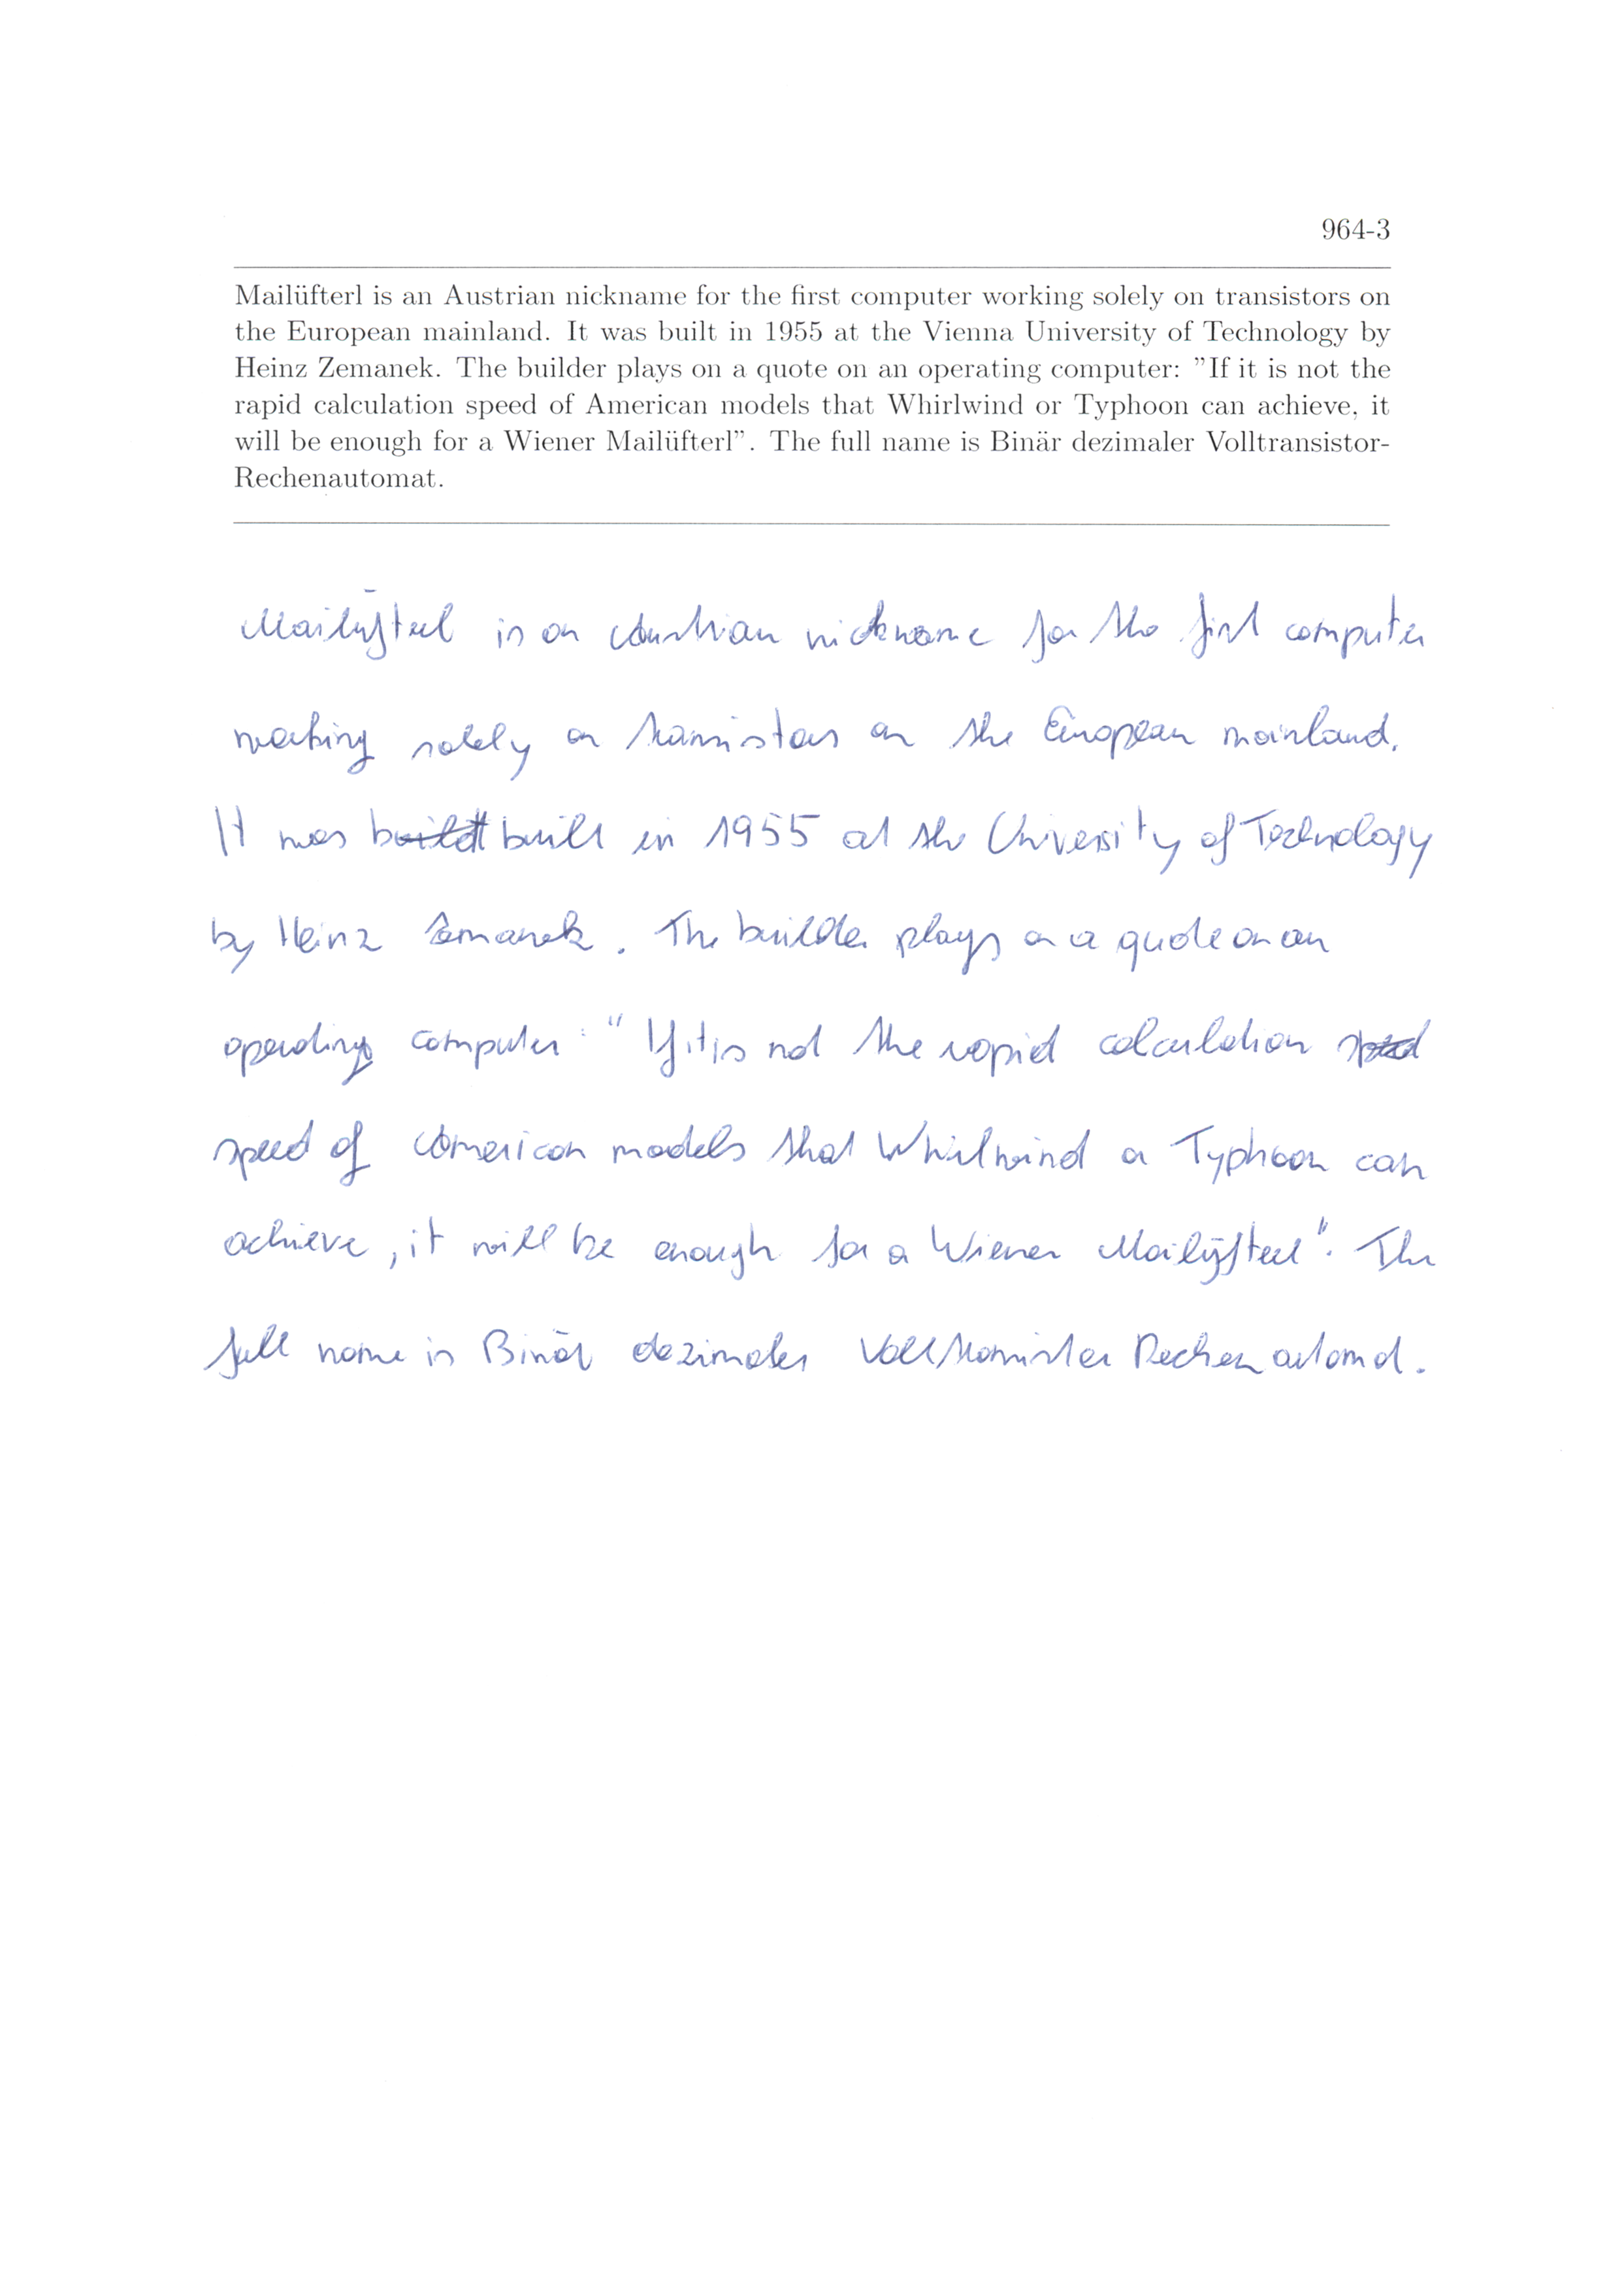 964-3
Mailüfterl is an Austrian nickname for the first computer working solely on transistors on
the European mainland. It was built in 1955 at the Vienna University of Technology by
Heinz Zemanek. The builder plays on a quote on an operating computer: ”If it is not the
rapid calculation speed of American models that Whirlwind or Typhoon can achieve, it
will be enough for a Wiener Mailüfterl”. The full name is Binär dezimaler Volltransistor-
Rechenautomat.
Mailüfterl is an Austrian nickname for the first computer
working solely on transistors on the European mainland.
It was built in 1955 at the University of Technology
by Heinz Zemanek. The builder plays on a quote on an
operating computer: "If it is not the rapid calculation
speed of American models that Whirlwind or Typhoon can
achieve, it will be enough for a Wiener Mailüfterl". The
full name is Binär dezimaler Volltransistor Rechenautomat.